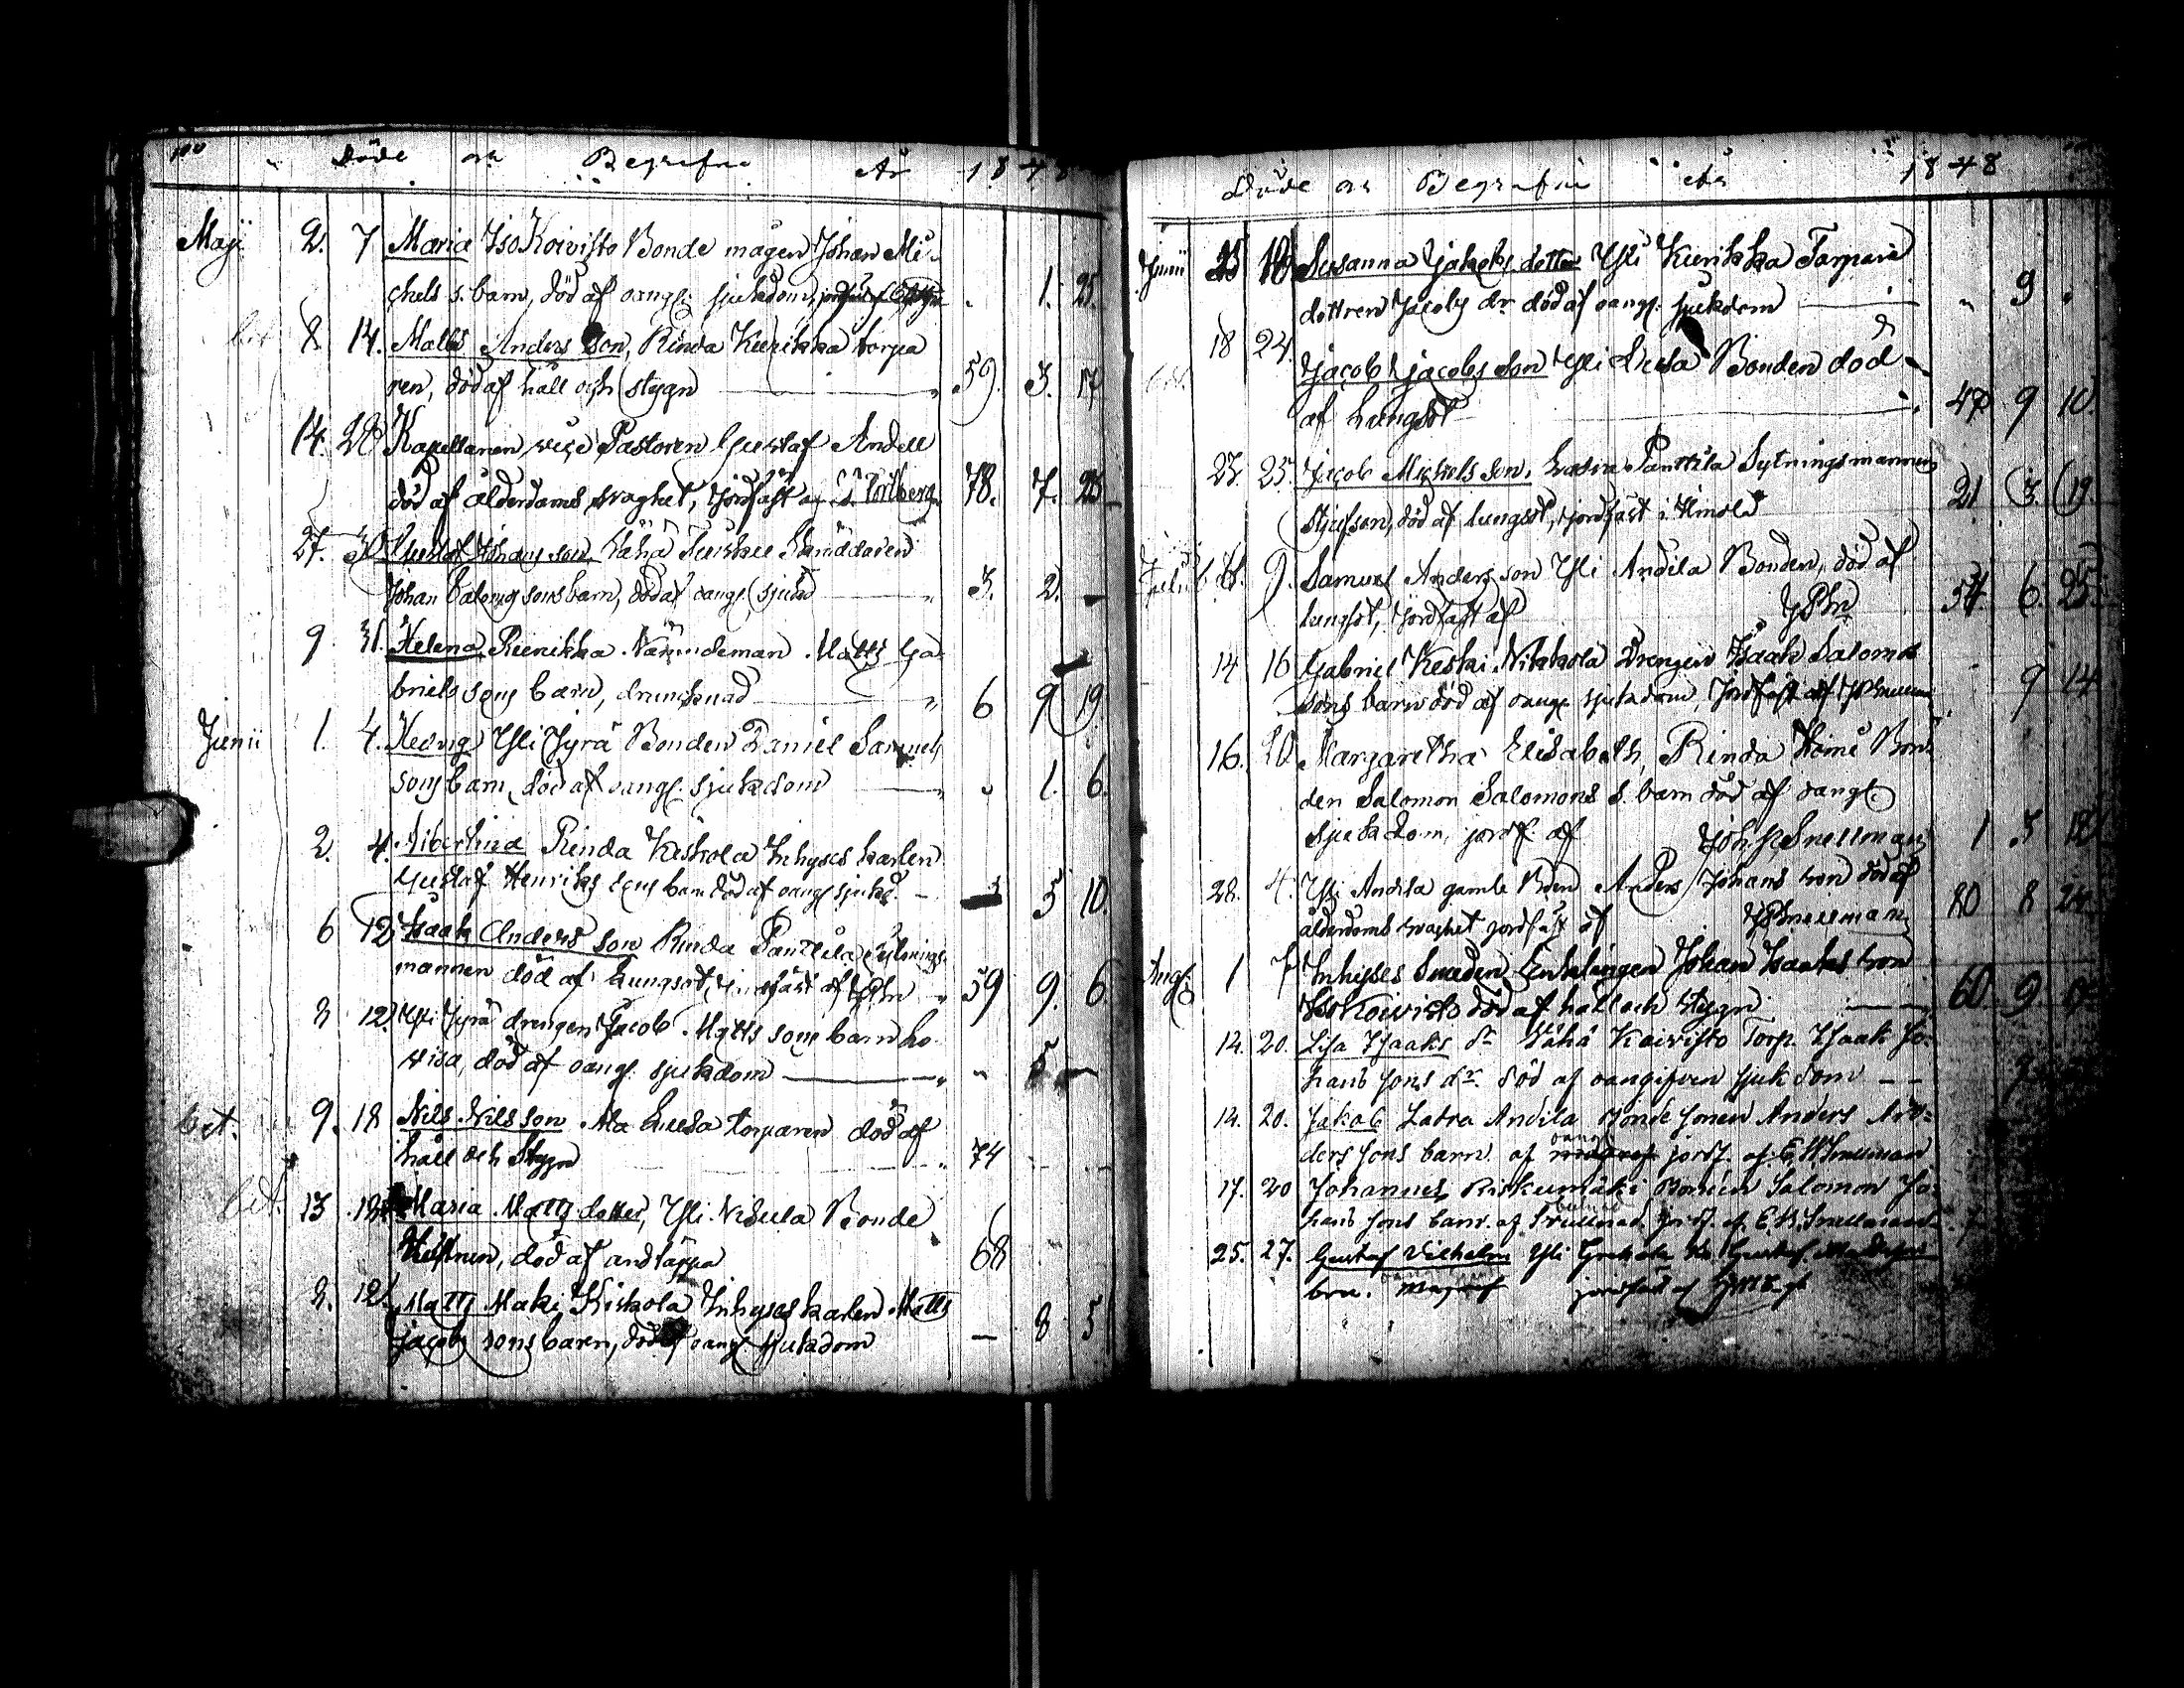 Döde och Begrafne År 1848
Maji 2. 7 Maria Iso Koivisto Bonde mågen Johan Mi-
chels s. barn, död af oangf. sjukdom, 1. 25.
bet. 8. 14. Matts Anders Son, Rinda Kurikka torpa
ren, död af håll och stygn 59. 3. 17
14. 20 Kapellanen vice Pastoren Gustaf Andell
död af ålderdoms svaghet, Jordfäst af 78. 7. 25
27. 30 Gustaf Johans son Lähä Tuisku
Johan Salomons sons barn, död af oangf. sjukd 3. 2. –
9. 31. Helena Kurikka Nämndeman Matts Ga
briels sons barn, drunknad 6 9 19
Junii 1. 4. Hedvig Yli Jyrä Bonden Daniel Samuels
sons barn, död af oangf. sjukdom „ 1. 6.
2. 4. Albertina Rinda Keskola Inhyses karlen
Gustaf Henriks sons barn död af oangf sjukd. – 5 10.
6 12 Isaak Anders son Rinda Panttila Sytnings
mannen död af Lungsot, jordfäst af 59 9. 6.
3 12 Yli Jyrä drengen Jacob Matts sons barn Lo
visa, död af oangf. sjukdom „ 5 –
bet. 9. 18 Nils Nils son Ala Luusa torparen död af
håll och Stygn 74
bet. 13 18 Maria Matts dotter, Yli Nisula Bonde
Hustrun, död af andtäppa 68
3. 12. Matts Maki Kiskola Inhyses karlen Matts
Jacobs sons barn, död af oangf. sjukdom – 8 5
Döde och Begrafne År 1848
Junii 18 Susanna Jakobs dotter Yli Kurikka Torpare
dottren Jacobs dr död af oangf. sjukdom „ 9 „
bet. 18 24. Jacob Jacobs Son Yli Luusa Bonden död
af Lungsot 47 9 10.
23. 25. Jacob Michels son, Panttila Sytningsmannens
Stjufson, död af lungsot, jordfäst i 21 3. 19.
Julii 9. Samuel Anders son Yli Andila Bonden, död af
lungsot, Jordfäst af 54 6. 25.
14 16 Gabriel Keski Nikkola Drengen Isaak Salomos
sons barn död af oangf sjukdom, Jordfäst af 9 14
16. 20. Margaretha Elisabeth, Rinda Bon
den Salomon Salomons s. barn död af oangf.
Sjukdom, jordf. af Joh. P. Snellman 1 3
28. 4. Yli Andila gamle Bden Anders Johans son död af
ålderdoms svaghet jordfäst af JPSnellman 80 8 24
Aug. 1 7 Inhyses Smeden Enklingen Johan Isaaks son
Iso Koivisto död af håll och stygn 60. 9
14. 20. Lisa Isaaks dr Vähä Koivisto Torp. Isaak Jo-
hans sons dr. död af oangifven sjukdom – –
14. 20. Jakob Latva Andila Bonde sonen Anders An-
ders sons barn. af oangf jordf. af E. W. Snellman
17. 20 Johannes Riskumäki Bonden Salomon Jo-
hans sons barn. af jordf. af E. W. Snellman
25. 27. Gustaf Vilhelm Yli Gustaf
brn. jordfäst af